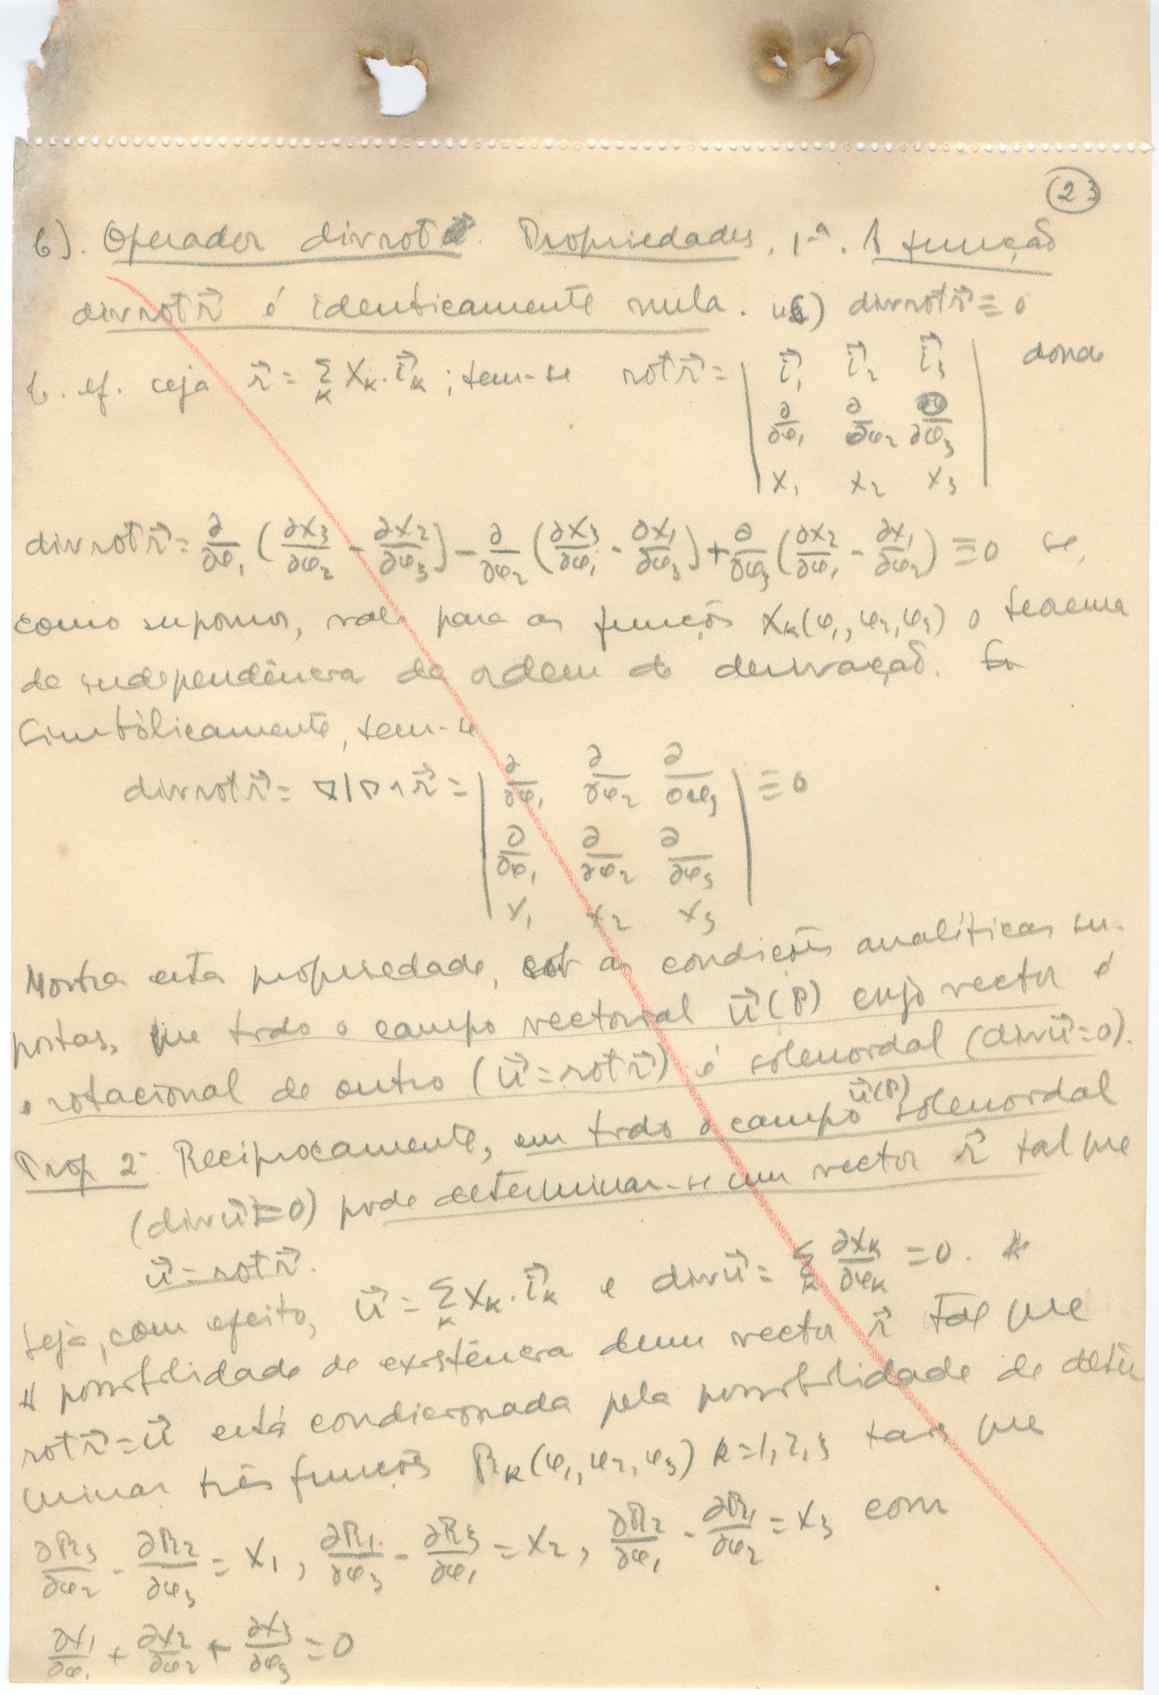 23
6). Operador div rot r⃗. Propriedades. 1ª. A função
div rot r⃗ é identicamente nula. 46) div rot r⃗ ≡ 0
E. ef. seja r⃗ = Σ_k X_k · i⃗_k ; tem-se rot r⃗ = | i⃗₁ i⃗₂ i⃗₃ | donde
∂/∂φ₁ ∂/∂φ₂ ∂/∂φ₃
X₁ X₂ X₃
div rot r⃗ = ∂/∂φ₁ (∂X₃/∂φ₂ - ∂X₂/∂φ₃) - ∂/∂φ₂ (∂X₃/∂φ₁ - ∂X₁/∂φ₃) + ∂/∂φ₃ (∂X₂/∂φ₁ - ∂X₁/∂φ₂) ≡ 0 se,
como supomos, vale para as funções X_k(φ₁,φ₂,φ₃) o teorema
de independência da ordem de derivação.
Simbólicamente, tem-se
div rot r⃗ = ∇|∇∧r⃗ = | ∂/∂φ₁ ∂/∂φ₂ ∂/∂φ₃ | ≡ 0
∂/∂φ₁ ∂/∂φ₂ ∂/∂φ₃
X₁ X₂ X₃
Mostra esta propriedade, sob as condições analíticas su-
postas, que todo o campo vectorial u⃗(P) cujo vector é
o rotacional de outro (u⃗ = rot r⃗) é solenoidal (div u⃗ = 0).
Prop 2ª Reciprocamente, em todo o campo u⃗(P) solenoidal
(div u⃗ ≡ 0) pode determinar-se um vector r⃗ tal que
u⃗ = rot r⃗.
Seja, com efeito, u⃗ = Σ_k X_k · i⃗_k e div u⃗ = Σ_k ∂X_k/∂φ_k = 0.
A possibilidade de existência dum vector r⃗ tal que
rot r⃗ = u⃗ está condicionada pela possibilidade de deter
minar três funções R_k(φ₁,φ₂,φ₃) k=1,2,3 tais que
∂R₃/∂φ₂ - ∂R₂/∂φ₃ = X₁, ∂R₁/∂φ₃ - ∂R₃/∂φ₁ = X₂, ∂R₂/∂φ₁ - ∂R₁/∂φ₂ = X₃ com
∂X₁/∂φ₁ + ∂X₂/∂φ₂ + ∂X₃/∂φ₃ = 0